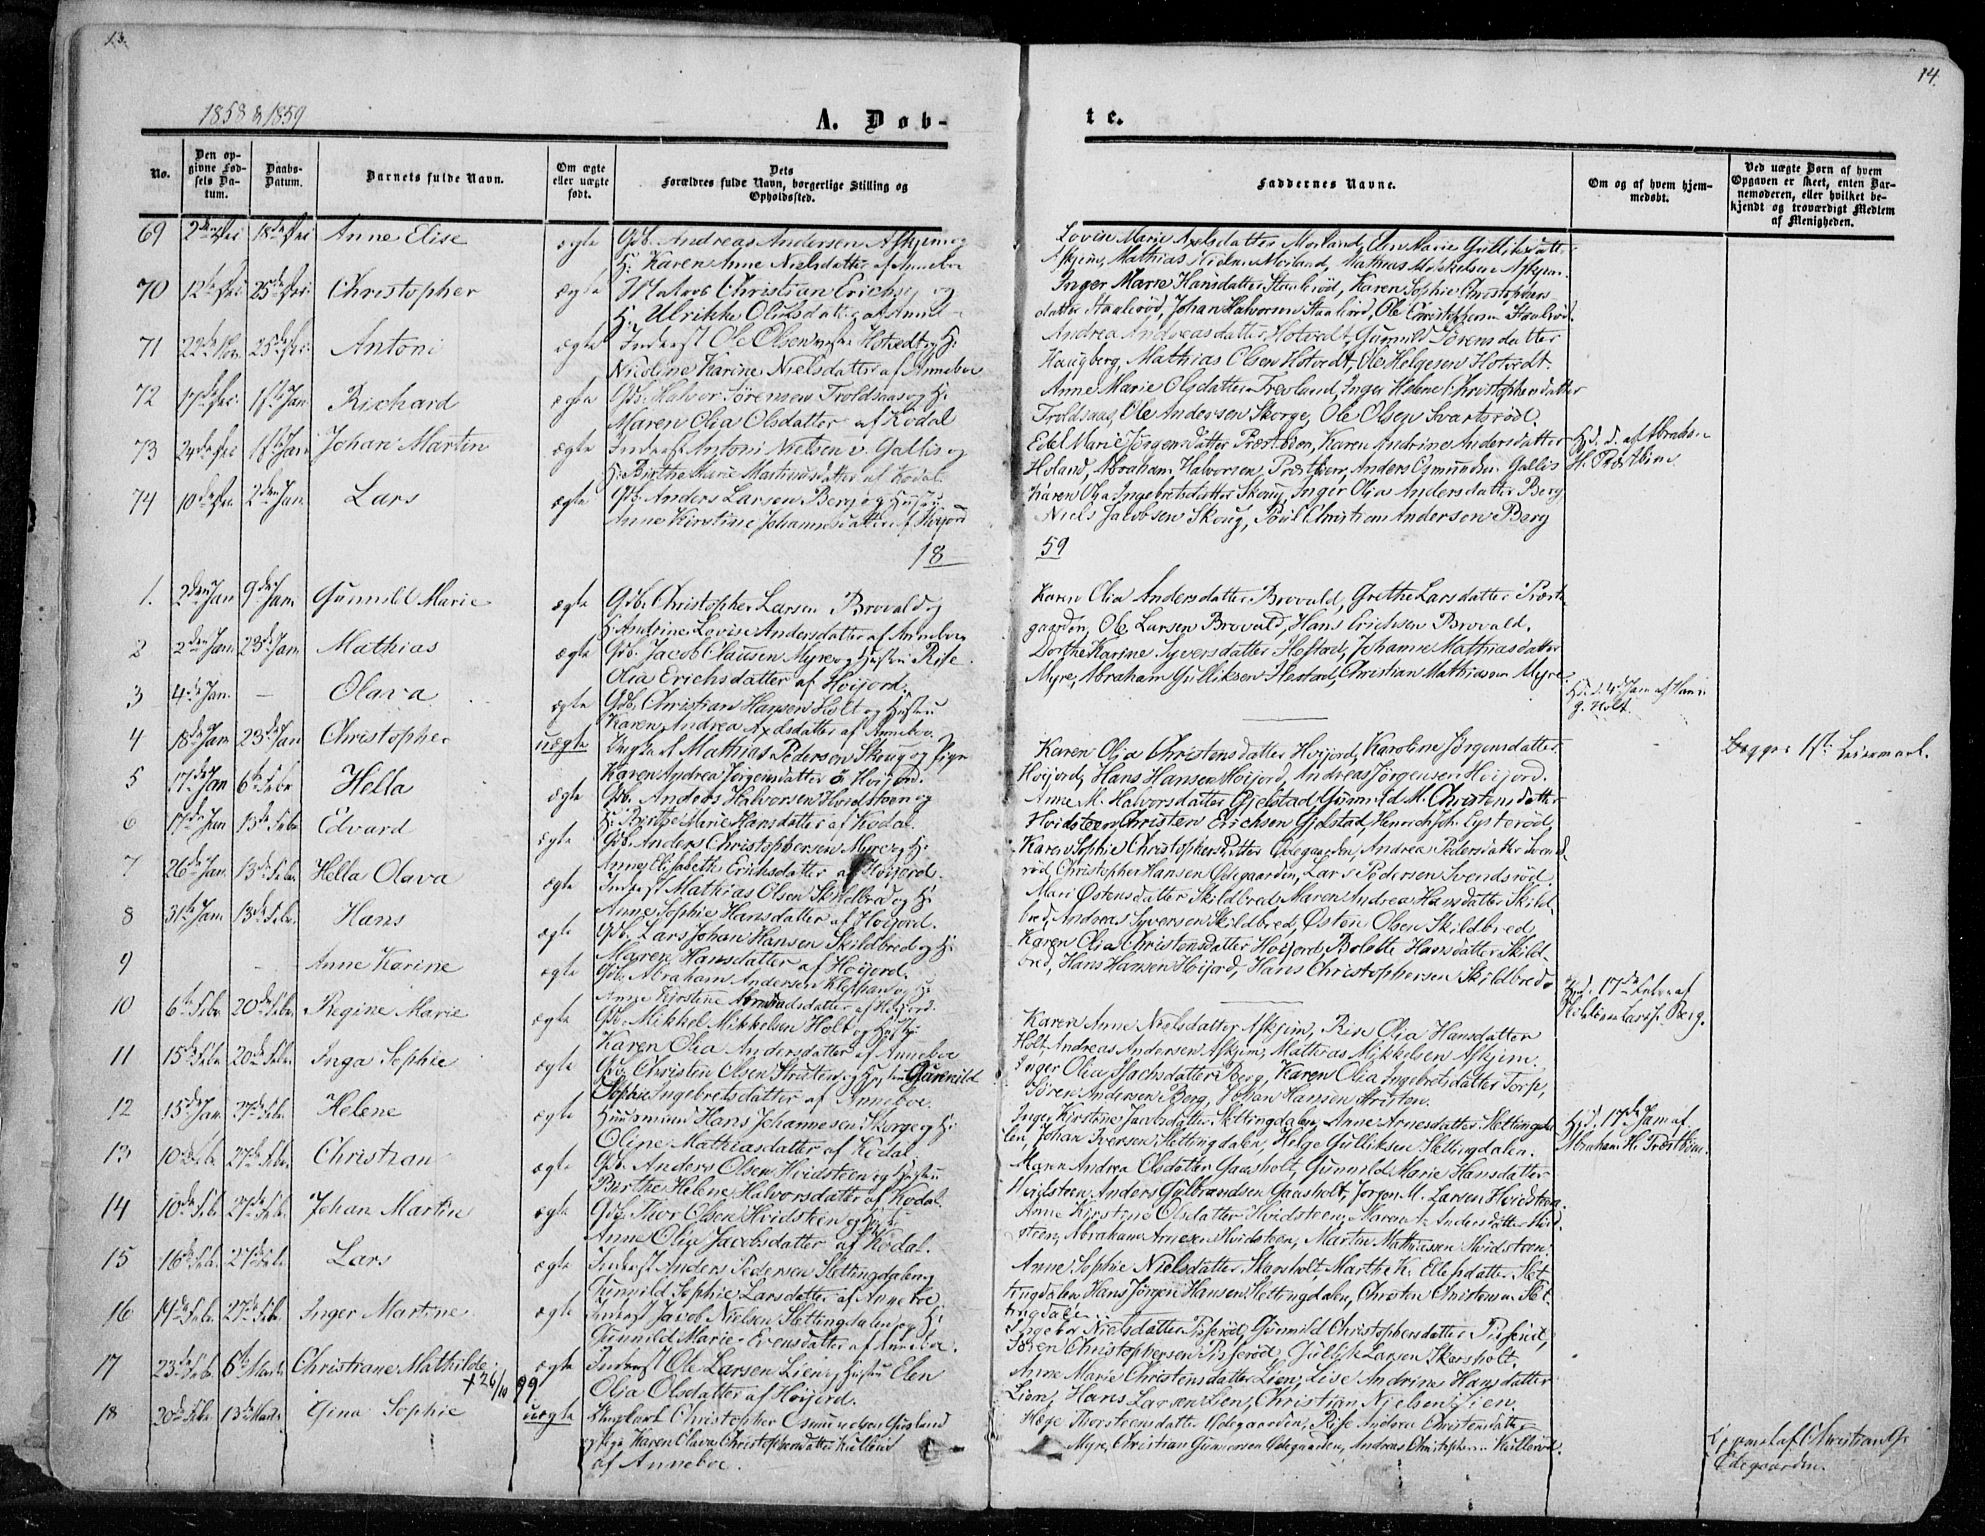 13.
14.
1858 & 1859
A. Døb-
te.
No.
Den op-
givne Fød-
sels Da-
tum.
Daabs-
Datum.
Barnets fulde Navn.
Om ægte
eller uægte
født.
Dets
Forældres fulde Navn, borgerlige Stilling og
Opholdssted.
Faddernes Navne.
Om og af hvem hjem-
medøbt.
Ved uægte Børn af hvem
Opgaven er skeet, enten Bar-
nemoderen, eller hvilket be-
kjendt og troværdigt Medlem
af Menigheden.
69 2den Dec 18de Dec Anne Elise ægte Gdb. Andreas Andersen Askjem og
H: Karen Anne Nielsdatter af Anneboe
Lovise Marie Axelsdatter Morland, Elen Marie Gulliksdatter
Askjem, Mathias Nielsen Morland, Mathias Mikkelsen Askjem.
70 12te Dec 25de Dec. Christopher ægte Christian Erichs. og
H: Ulrikke Olesdatter
Inger Marie Hansdatter Staalerød, Karen Sophie Christophers
datter Staalerød, Johan Halvorsen Staalerød, Ole Christophersen Staalerød.
71 22de Nov. 25de Dec. Antoni ægte Inderst Ole Olsen Hotvedt og H:
Nicoline Karine Nielsdatter af Anneboe
Andrea Andreasdatter Hotvedt, Gunnild Sørensdatter
Haugberg, Mathias Olsen Hotvedt, Ole Helgesen Hotvedt.
72 17de Dec. 1ste Jan Richard ægte Gdb. Halvor Sørensen Troldsaas og H:
Maren Olia Olsdatter af Kodal
Anne Marie Olsdatter Trevland, Inger Helene Christophersdatter
Troldsaas, Ole Andersen Skorge, Ole Olsen Svartsrød.
73 24de Dec 1ste Jan Johan Martin ægte Inderst Antoni Nielsen Gallis og
H: Birthe Marie Martinusdatter af Kodal.
Edel Marie Jørgensdatter Præstbøen, Karen Andrine Andersdatter
Holand, Abraham Halvorsen Præstbøen, Anders Osmundsen Gallis
Hj. d. af Abraham
H. Præstbøen
74 10de Dec. 2den Jan. Lars ægte Gdb. Anders Larsen Berg og Hustru
Anne Kirstine Johannesdatter af Høijord
Karen Olia Ingebretsdatter Skoug, Inger Olia Andersdatter Berg
Niels Jacobsen Skoug, Poul Christian Andersen Berg
18
59
1. 2den Jan 9de Jan. Gunnild Marie ægte Gdb. Christopher Larsen Brovald og
H: Andrine Lovise Andersdatter af Anneboe
Karen Olia Andersdatter Brovald, Grethe Larsdatter Præst-
gaarden, Ole Larsen Brovald, Hans Erichsen Brovald.
2 2den Jan 23de Jan Mathias ægte Gdb. Jacob Clausen Myre og Hustru Rise
Olia Erichsdatter af Høijord.
Dorthe Karine Syversdatter Hestad, Johanne Mathiasdatter
Myre, Abraham Gulliksen Hestad, Christian Mathiasen Myre.
3 4de Jan. — Olava ægte Gdb. Christian Hansen Holt og Hustru
Karen Andrea Axelsdatter af Anneboe.
Hj. d. 4de Jan af Hans
G. Holt.
4 18de Jan 23de Jan Christopher uægte Ungkarl Mathias Pedersen Skoug og Pige
Karen Andrea Jørgensdatter Høijord.
Karen Olia Christensdatter Høijord, Karoline Jørgensdatter
Høijord, Hans Hansen Høijord, Andreas Jørgensen Høijord.
Begges 1ste Leiermaal.
5 17de Jan 6te Febr Hella ægte Gdb. Anders Halvorsen Hvidsteen og
H: Birthe Marie Hansdatter af Kodal.
Anne M. Halvorsdatter Gjelstad, Gunnild M. Christensdatter
Hvidsteen, Christen Erichsen Gjelstad, Henrich Joh. Lysterød,
6 17de Jan 13de Febr Edvard ægte Gdb. Anders Christophersen Myre og H:
Anne Elisabeth Erichsdatter af Høijord.
Karen Sophie Christophersdatter Ødegaarden, Andrea Pedersdatter Svends-
rød, Christopher Hansen Ødegaarden, Lars Pedersen Svendsrød.
7 26de Jan 13de Febr. Hella Olava ægte Inderst Mathias Olsen Skildbred og H:
Anne Sophie Hansdatter af Høijord.
Mari Østensdatter Skildbred, Maren Andrea Hansdatter Skild-
bred, Andreas Syversen Skildbred, Østen Olsen Skildbred,
8 31te Jan. 13de Febr. Hans ægte Gdb. Lars Johan Hansen Skildbred og H:
Maren Hansdatter af Høijord.
Karen Olia Christensdatter Høijord, Bolette Hansdatter Skild-
bred, Hans Hansen Høijord, Hans Christophersen Skildbred.
9 — Anne Karine ægte Gdb. Abraham Andersen Klephan og H:
Anne Kirstine datter af Høijord.
Hj. d. 17de Febr af
Larss. Berg.
10 6te Febr. 20de Febr. Regine Marie ægte Gdb. Mikkel Mikkelsen Holt og Hustru
Karen Olia Andersdatter af Anneboe
Karen Anne Nielsdatter Askjem, Rise Olia Hansdatter
Holt, Andreas Andersen Askjem, Mathias Mikkelsen Askjem.
11 15de Febr. 20de Febr. Inga Sophie ægte Gdb. Christen Olsen og Hustru Gunnild
Sophie Ingebretsdatter af Anneboe.
Inger Olia Isachsdatter Berg, Karen Olia Ingebretsdatter Torp,
Søren Andersen Berg, Johan Hansen
12 15de Jan. 27de Febr. Helene ægte Huusmand Hans Johannesen Skorge og H:
Oline Mathiasdatter af Kodal.
Inger Kirstine Jacobsdatter Slettingdalen, Anne Arnesdatter Slettingda-
len, Johan Iversen Slettingdalen, Helge Gulliksen Slettingdalen.
Hj. d. 17de Jan af
Abraham H. Præstbøen.
13 10de Febr. 27de Febr. Christian ægte Gdb. Anders Olsen Hvidsteen og Hustru
Birthe Helene Halvorsdatter af Kodal
Maren Andrea Olsdatter Gaasholt, Gunnild Marie Hansdatter
Hvidsteen, Anders Gulbrandsen Gaasholt, Jørgen M. Larsen Hvidsteen.
14 10de Febr. 27de Febr. Johan Martin ægte Gdb. Thor Olsen Hvidsteen og Hustru
Anne Olia Jacobsdatter af Kodal.
Anne Kirstine Olsdatter Hvidsteen, Maren A. Andersdatter Hvid-
steen, Abraham Arnesen Hvidsteen, Martin Mathiesen Hvidsteen.
15 16de Febr. 27de Febr Lars ægte Inderst Anders Pedersen Slettingdalen og
Gunnild Sophie Larsdatter af Anneboe
Anne Sophie Nielsdatter Skarsholt, Marthe K. Ellefsdatter Slet-
tingdalen, Hans Jørgen Hansen Slettingdalen, Christen Christensen Slet-
tingdalen
16 19de Febr. 27de Febr. Inger Martine ægte Inderst Jacob Nielsen Slettingdalen og H:
Gunnild Marie Evensdatter af Anneboe.
Ingebor Nielsdatter Pisserød, Gunnild Christophersdatter Pisserød,
Søren Christophersen Pisserød, Gullik Larsen Skarsholt.
17 23de Febr. 6te Marts Christiane Mathilde ægte Inderst Ole Larsen Lien og Hustru Elen
+ 26/10 99
Olia Olsdatter af Høijord.
Anne Marie Christensdatter Lien, Lise Andrine Hansdatter
Lien, Hans Larsen Lien, Christian Nielsen Lien.
18 20de Febr. 13de Marts Gina Sophie uægte Ungkarl Christopher Osmundsen Gusland
og Pige Karen Olava Christophersdatter Kullerød
af Anneboe.
Thorsteensdatter Ødegaarden, Rise Andrea Christensdatter
Myre, Christian Gunnersen Ødegaarden, Andreas Christophersen Kullerød.
af Christian G.
Ødegaarden.